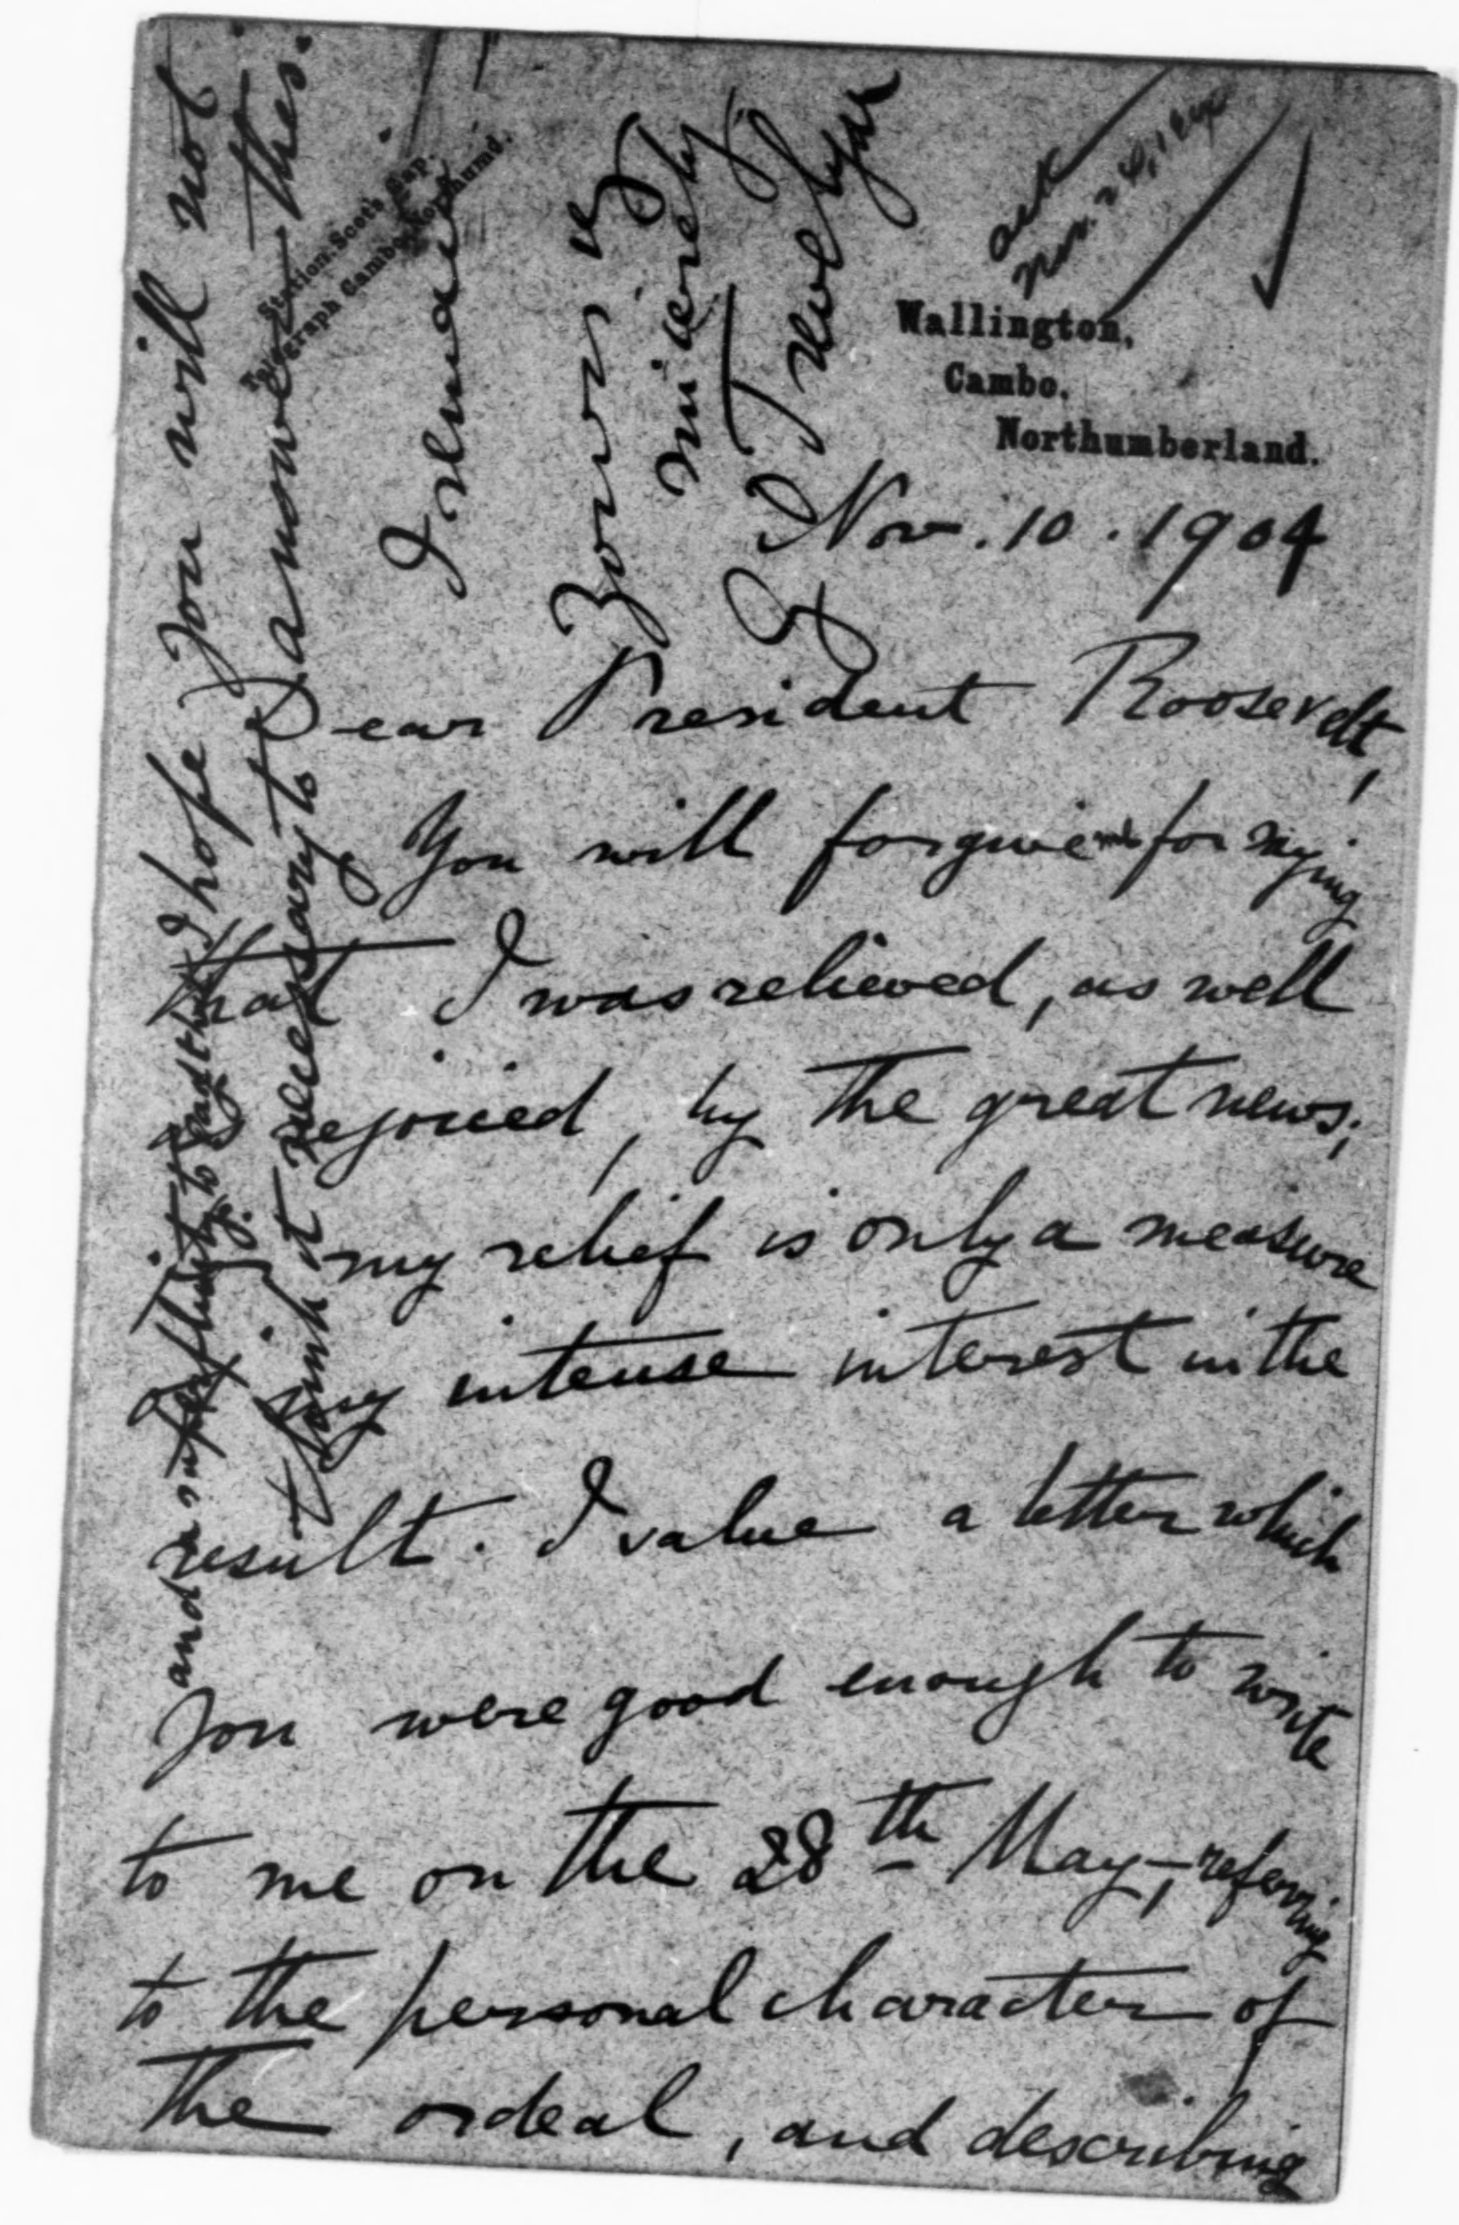 Station. Scots Gap.
Telegraph Cambo. Northumd.
Ack
Wallington,
Cambo,
Northumberland.
Nov. 10. 1904
Dear President Roosevelt,
You will forgive me for saying
that I was relieved, as well
as rejoiced, by the great news;
my relief is only a measure
of my intense interest in the
result. I value a letter which
you were good enough to write
to me on the 28th May, referring
to the personal character of
the ordeal, and describing
and superfluity to read this. I hope you will not
think it necessary to answer this.
I remain
Yours v
sincerely
G O Trevelyan